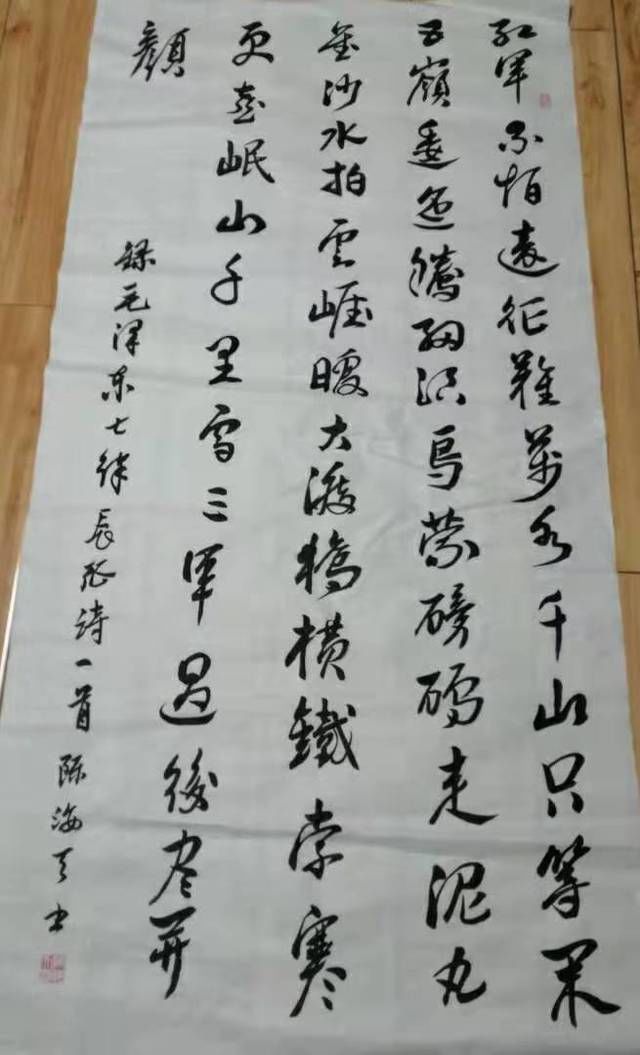 紅軍不怕遠征難萬水千山只等閑
五嶺逶迤騰細浪烏蒙磅礴走泥丸
金沙水拍雲崖暖大渡橋橫鐵索寒
更喜岷山千里雪三軍過後盡開
顏
錄毛澤東七律長征詩一首 陳海天书